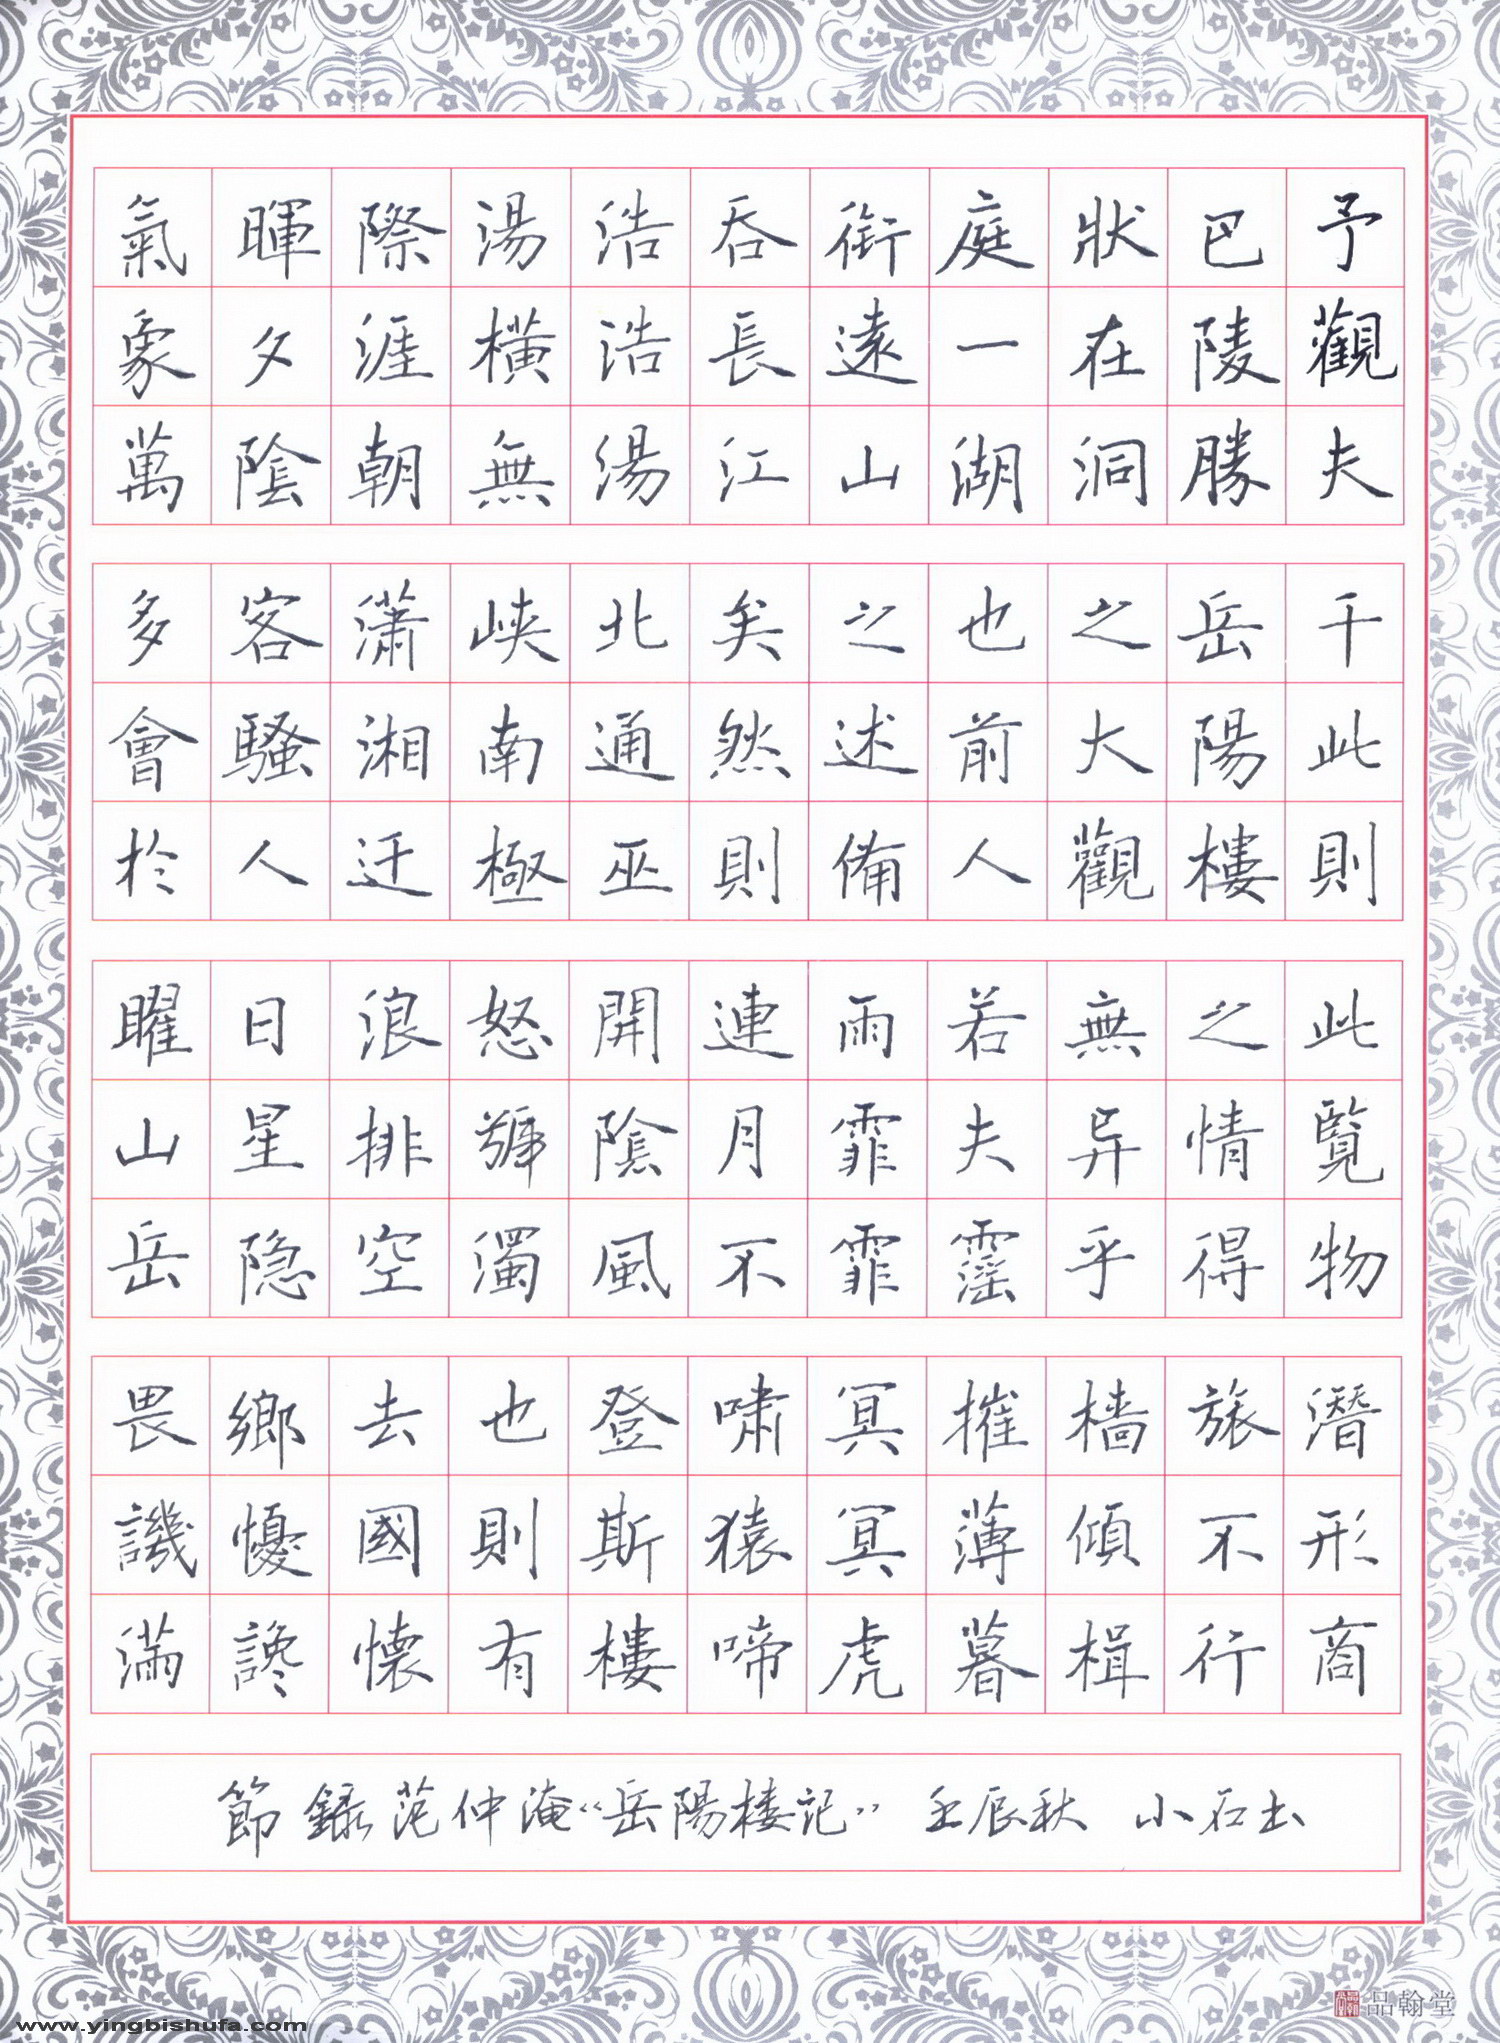 予觀夫
巴陵勝
狀在洞
庭一湖
銜遠山
吞長江
浩浩湯
湯橫無
際涯朝
暉夕陰
氣象萬
千此則
岳陽樓
之大觀
也前人
之述備
矣然則
北通巫
峽南極
瀟湘迁
客騷人
多會於
此覽物
之情得
無异乎
若夫霪
雨霏霏
連月不
開陰風
怒號濁
浪排空
日星隐
曜山岳
潛形商
旅不行
檣傾楫
摧薄暮
冥冥虎
嘯猿啼
登斯樓
也則有
去國懷
鄉懮讒
畏譏滿
節錄范仲淹“岳陽楼記” 壬辰秋 小石书
品翰堂
www.yingbishufa.com